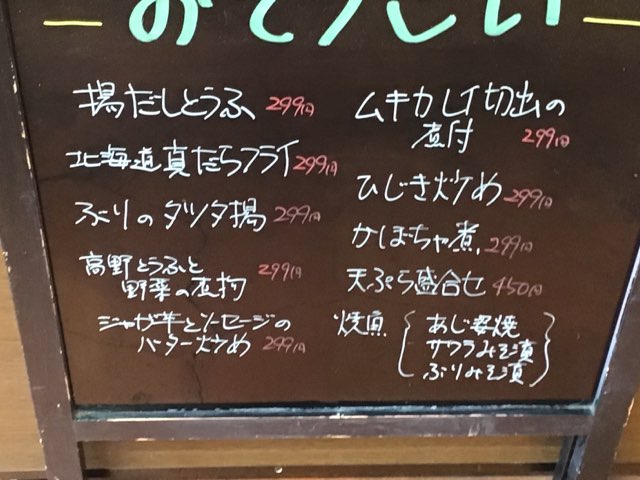 おそうざい
揚だしとうふ 299円
北海道真だらフライ 299円
ぶりのタツタ揚 299円
高野とうふと 299円
野菜の
ジャガ芋とソーセージの
バター炒め 299円
ムキカレイ切出の
煮付 299円
ひじき炒め 299円
かぼちゃ煮 299円
天ぷら盛合せ 450円
焼魚
あじ姿焼
サワラみそ漬
ぶりみそ漬